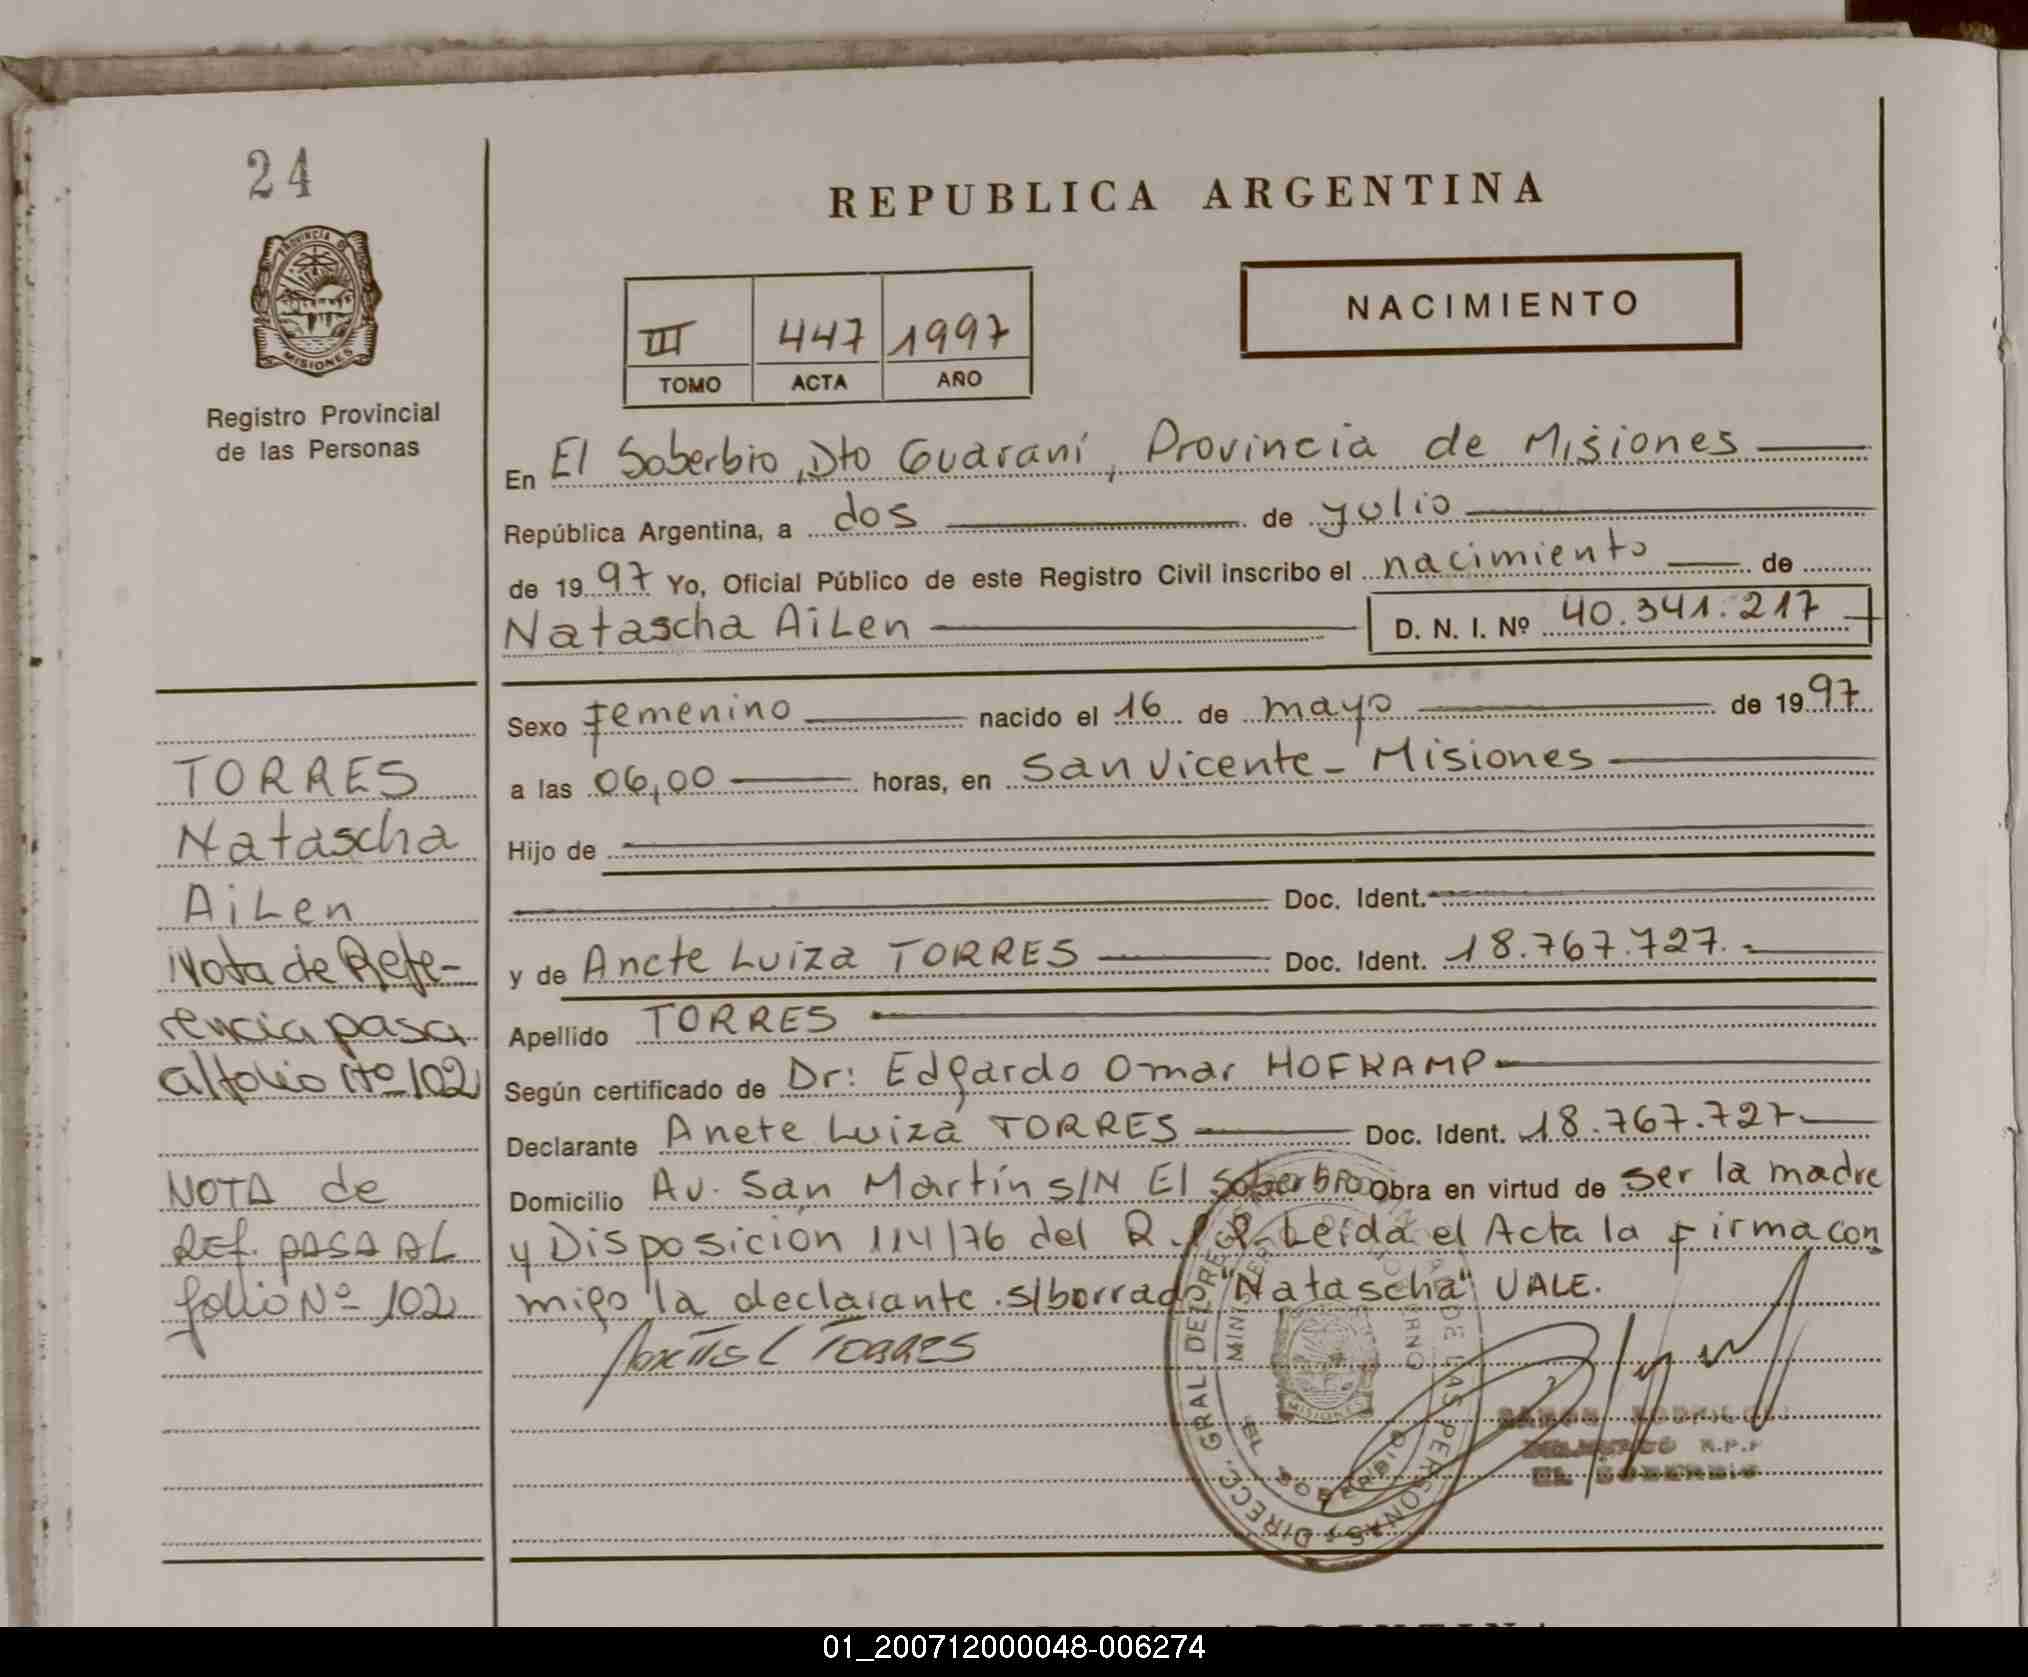 24
REPUBLICA ARGENTINA
PROVINCIA DE
MISIONES
Registro Provincial
de las Personas
NACIMIENTO
III 447 1997
TOMO ACTA AÑO
En El Soberbio, Dto Guaraní, Provincia de Misiones
República Argentina, a dos de yulio
de 1997 Yo, Oficial Público de este Registro Civil inscribo el nacimiento de
Natascha AiLen D. N. I. Nº 40.341.217
Sexo Femenino nacido el 16 de mayo de 1997
a las 06,00 horas, en San Vicente - Misiones
Hijo de
Doc. Ident.
y de Ancte Luiza TORRES Doc. Ident. 18.767.727.-
Apellido TORRES
Según certificado de Dr: Edgardo Omar HOFKAMP
Declarante Anete Luiza TORRES Doc. Ident. 18.767.727
Domicilio Av. San Martín S/N El Soberbio Obra en virtud de ser la madre
y Disposición 114/76 del R. Leída el Acta la firma con
migo la declarante. s/borrado "Natascha" VALE.
TORRES
TORRES
Natascha
AiLen
Nota de Refe-
rencia pasa
al folio Nº 102
NOTA de
REF. PASA AL
folio Nº 102
DIRECC. GRAL. DEL REG. DE LAS PERSONAS
EL SOBERBIO
MISIONES
R.P.P
EL SOBERBIO
01_200712000048-006274